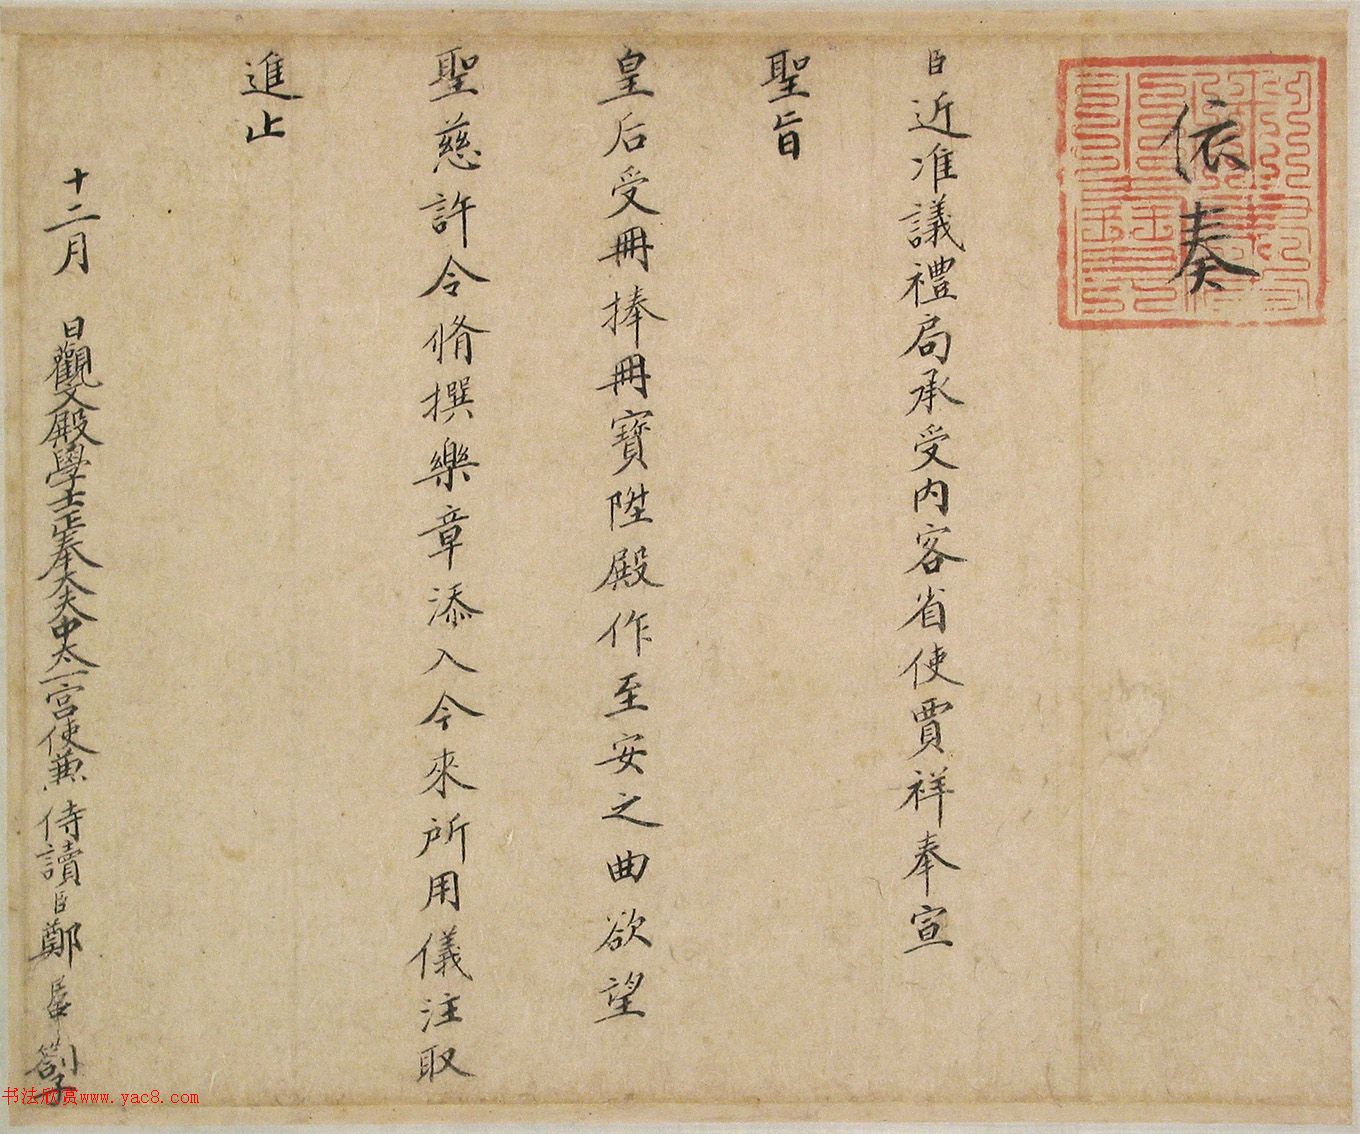 依奏
臣近准議禮局承受內客省使賈祥奉宣
聖旨
皇后受冊捧冊寶陞殿作至安之曲欲望
聖慈許令脩撰樂章添入今來所用儀注取
進止
十二月 日觀文殿學士正奉大夫中太一宮使兼 侍讀臣鄭居中劄子
书法欣赏www.yac8.com